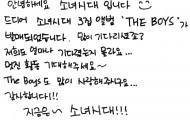 안녕하세요 소녀시대 입니다
드디어 소녀시대 3집 앨범 'THE BOYS'가
발매되었습니다. 많이 기다리셨죠?
저희도 얼마나 기다렸는지 몰라요...
멋진 활동 기대해주세요~
The Boys도 많이 사랑해주시구요...
감사합니다!!
지금은~ 소녀시대!!!